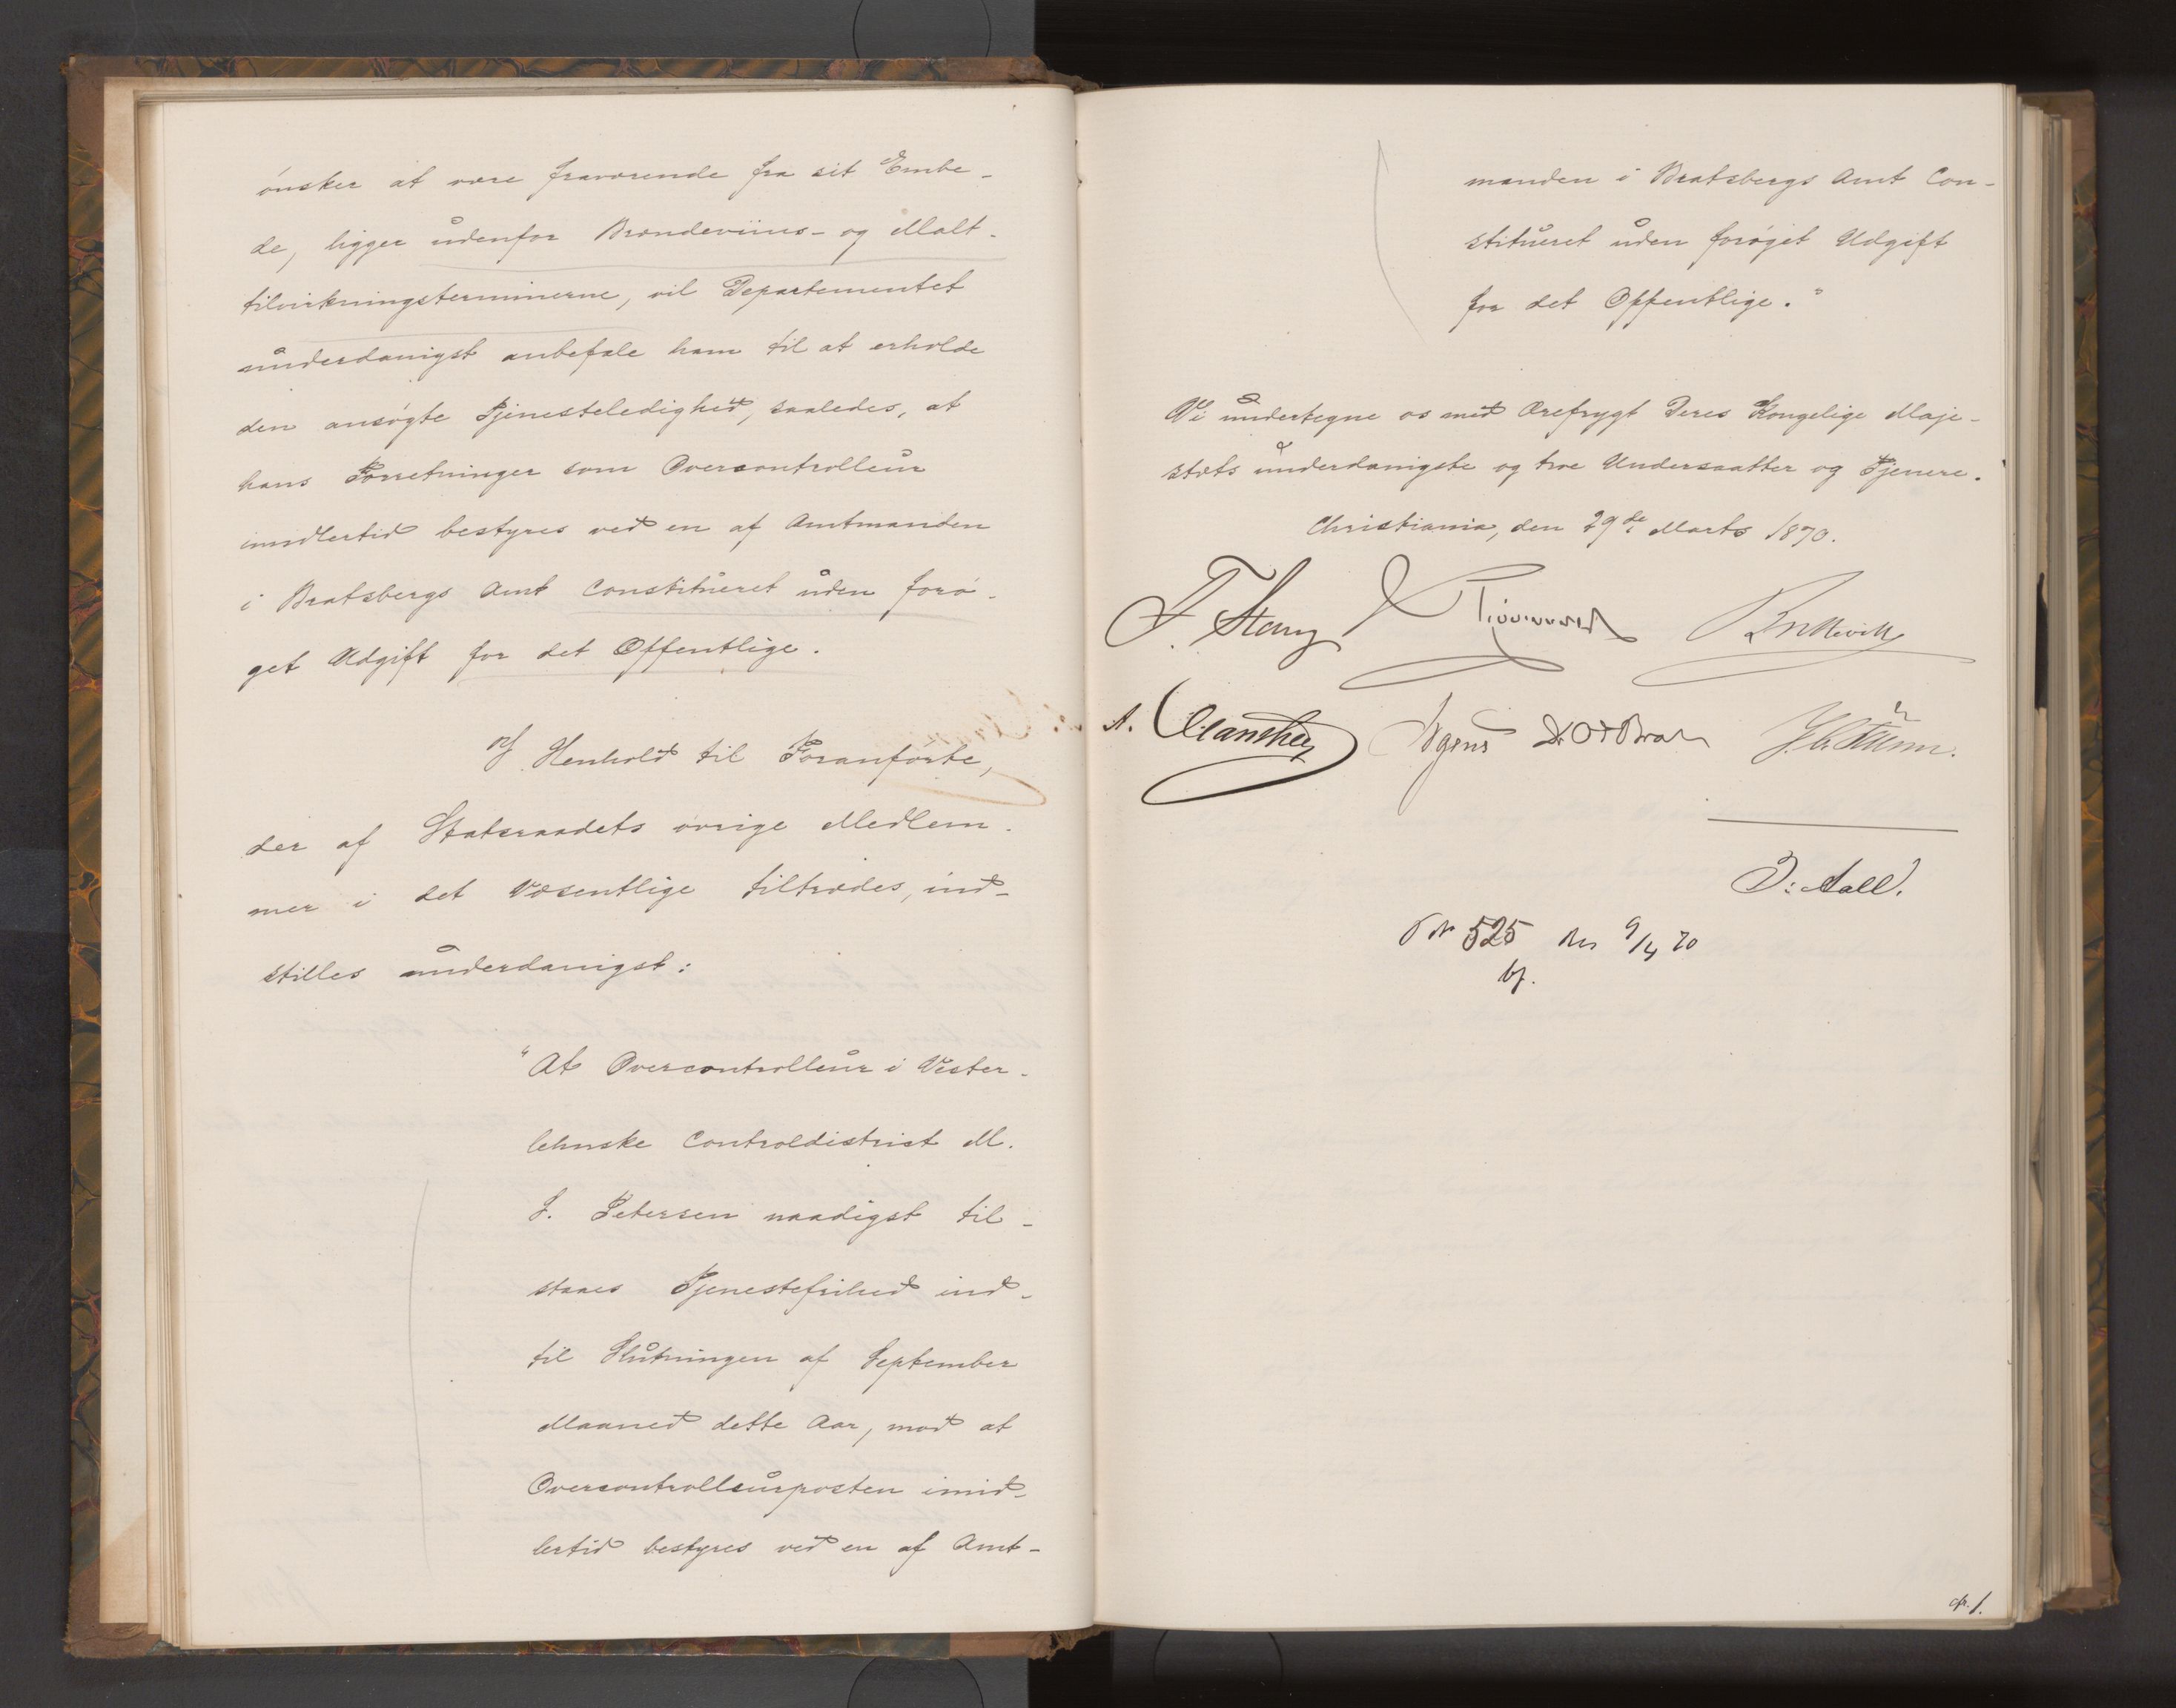 ønsker at være fraværende fra sit Embe-
de, ligger udenfor Brændeviins- og Malt-
tilvirkningsterminerne, vil Departementet
underdanigst anbefale ham til at erholde
den ansøgte Tjenesteledighed, saaledes, at
hans Forretninger som Overcontrolleur
imidlertid bestyres ved en af Amtmanden
i Bratsbergs Amt Constitueret uden forø-
get Udgift for det Offentlige.
I Henhold til Foranførte,
der af Statsraadets øvrige Medlem-
mer i det Væsentlige tiltrædes, ind-
stilles underdanigst:
"At Overcontrolleur i Vester-
lehnske Controldistrict M.
J. Petersen naadigst til-
staaes Tjenestefrihed ind-
til Slutningen af September
Maaned dette Aar, mod at
Overcontrolleurposten imid-
lertid bestyres ved en af Amt-
manden i Bratsbergs Amt Con-
stitueret uden forøget Udgift
for det Offentlige."
Vi undertegne os med Ærefrygt Deres Kongelige Maje-
stæts underdanigste og troe Undersaatter og Tjenere.
Christiania, den 29de Marts 1870.
F. Stang
Bretteville
A. Manthey Irgens
J. Aall.
No 525 9/4 70